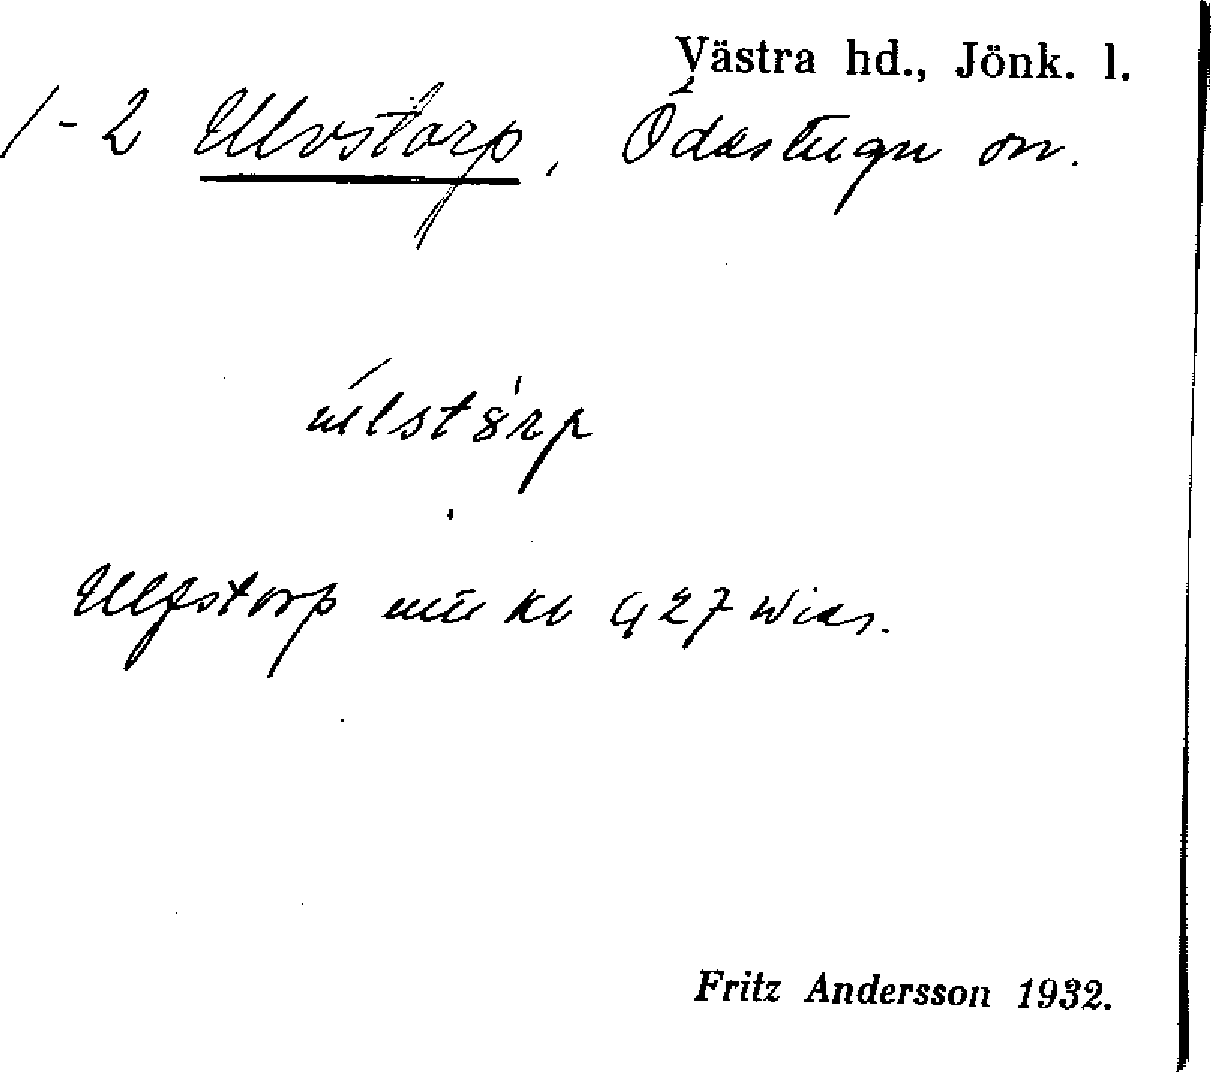 Västra hd., Jönk. l.
1-2 Ulvstorp, Ödestugu sn.
úlstȣ́rp
Ulfstorp
Fritz Andersson 1932.